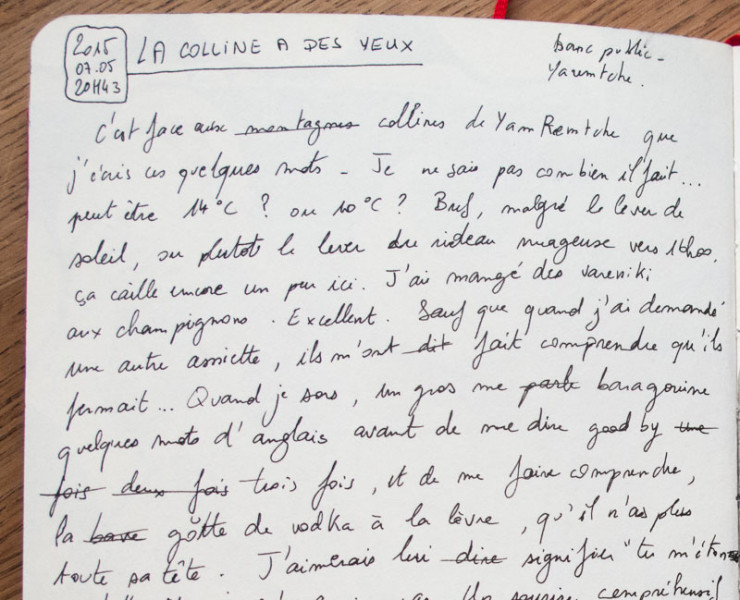 2015
07.05
20H43
LA COLLINE A DES YEUX
banc public -
Yaremtche.
C'est face aux montagnes collines de YamRemtche que
j'écris ces quelques mots - Je ne sais pas combien il fait...
peut être 14°C ? ou 10°C ? Bref, malgré le lever de
soleil, ou plutôt le lever du rideau nuageuse vers 17h00,
ça caille encore un peu ici. J'ai mangé des vareniki
aux champignons. Excellent. Sauf que quand j'ai demandé
une autre assiette, ils m'ont dit fait comprendre qu'ils
fermait... Quand je sors, un gros me parle baragouine
quelques mots d'anglais avant de me dire good by une
fois deux fois trois fois, et de me faire comprendre,
la bave gôtte de vodka à la lèvre, qu'il n'as plus
toute sa tête. J'aimerais lui dire signifier "tu m'étonne
Un sourire compréhensif